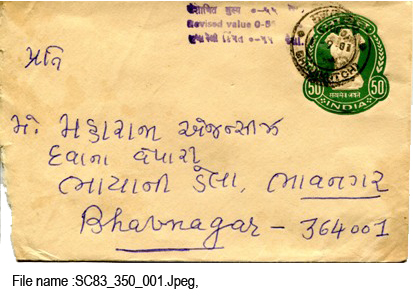 संशोधित मूल्य ०-५५
Revised value 0-55
50 50
सत्यमेव जयते
INDIA
પ્રતિ
મે. મહારાજ એજન્સીઝ
દવાના વેપારી,
ભાયાની ડેલા, ભાવનગર
Bhavnagar - 364001
File name :SC83_350_001.Jpeg,